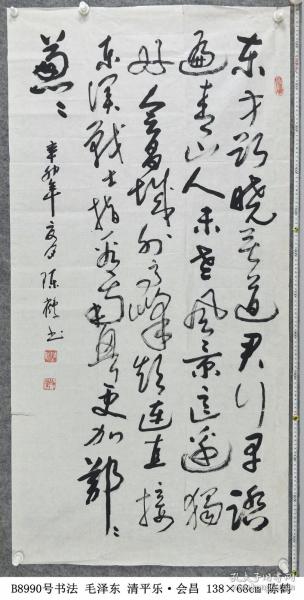 东方欲晓莫道君行早踏
遍青山人未老风景这边独
好会昌城外高峰颠连直接
东溟战士指看南粤更加郁々
葱々
辛卯年夏日 陈鹤书
B8990号书法 毛泽东 清平乐·会昌 138×68cm 陈鹤